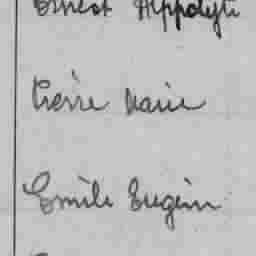 Ernest Hippolyte
Pierre Marie
Emile Eugène